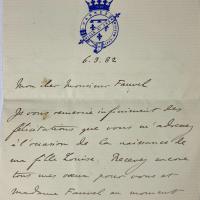 6.3.82
Mon cher Monsieur Fauvel
Je vous remercie infiniment des
félicitations que vous m'adressez
à l'occasion de la naissance de
ma fille Louise. Recevez encore
tous mes vœux pour vous et
Madame Fauvel au moment